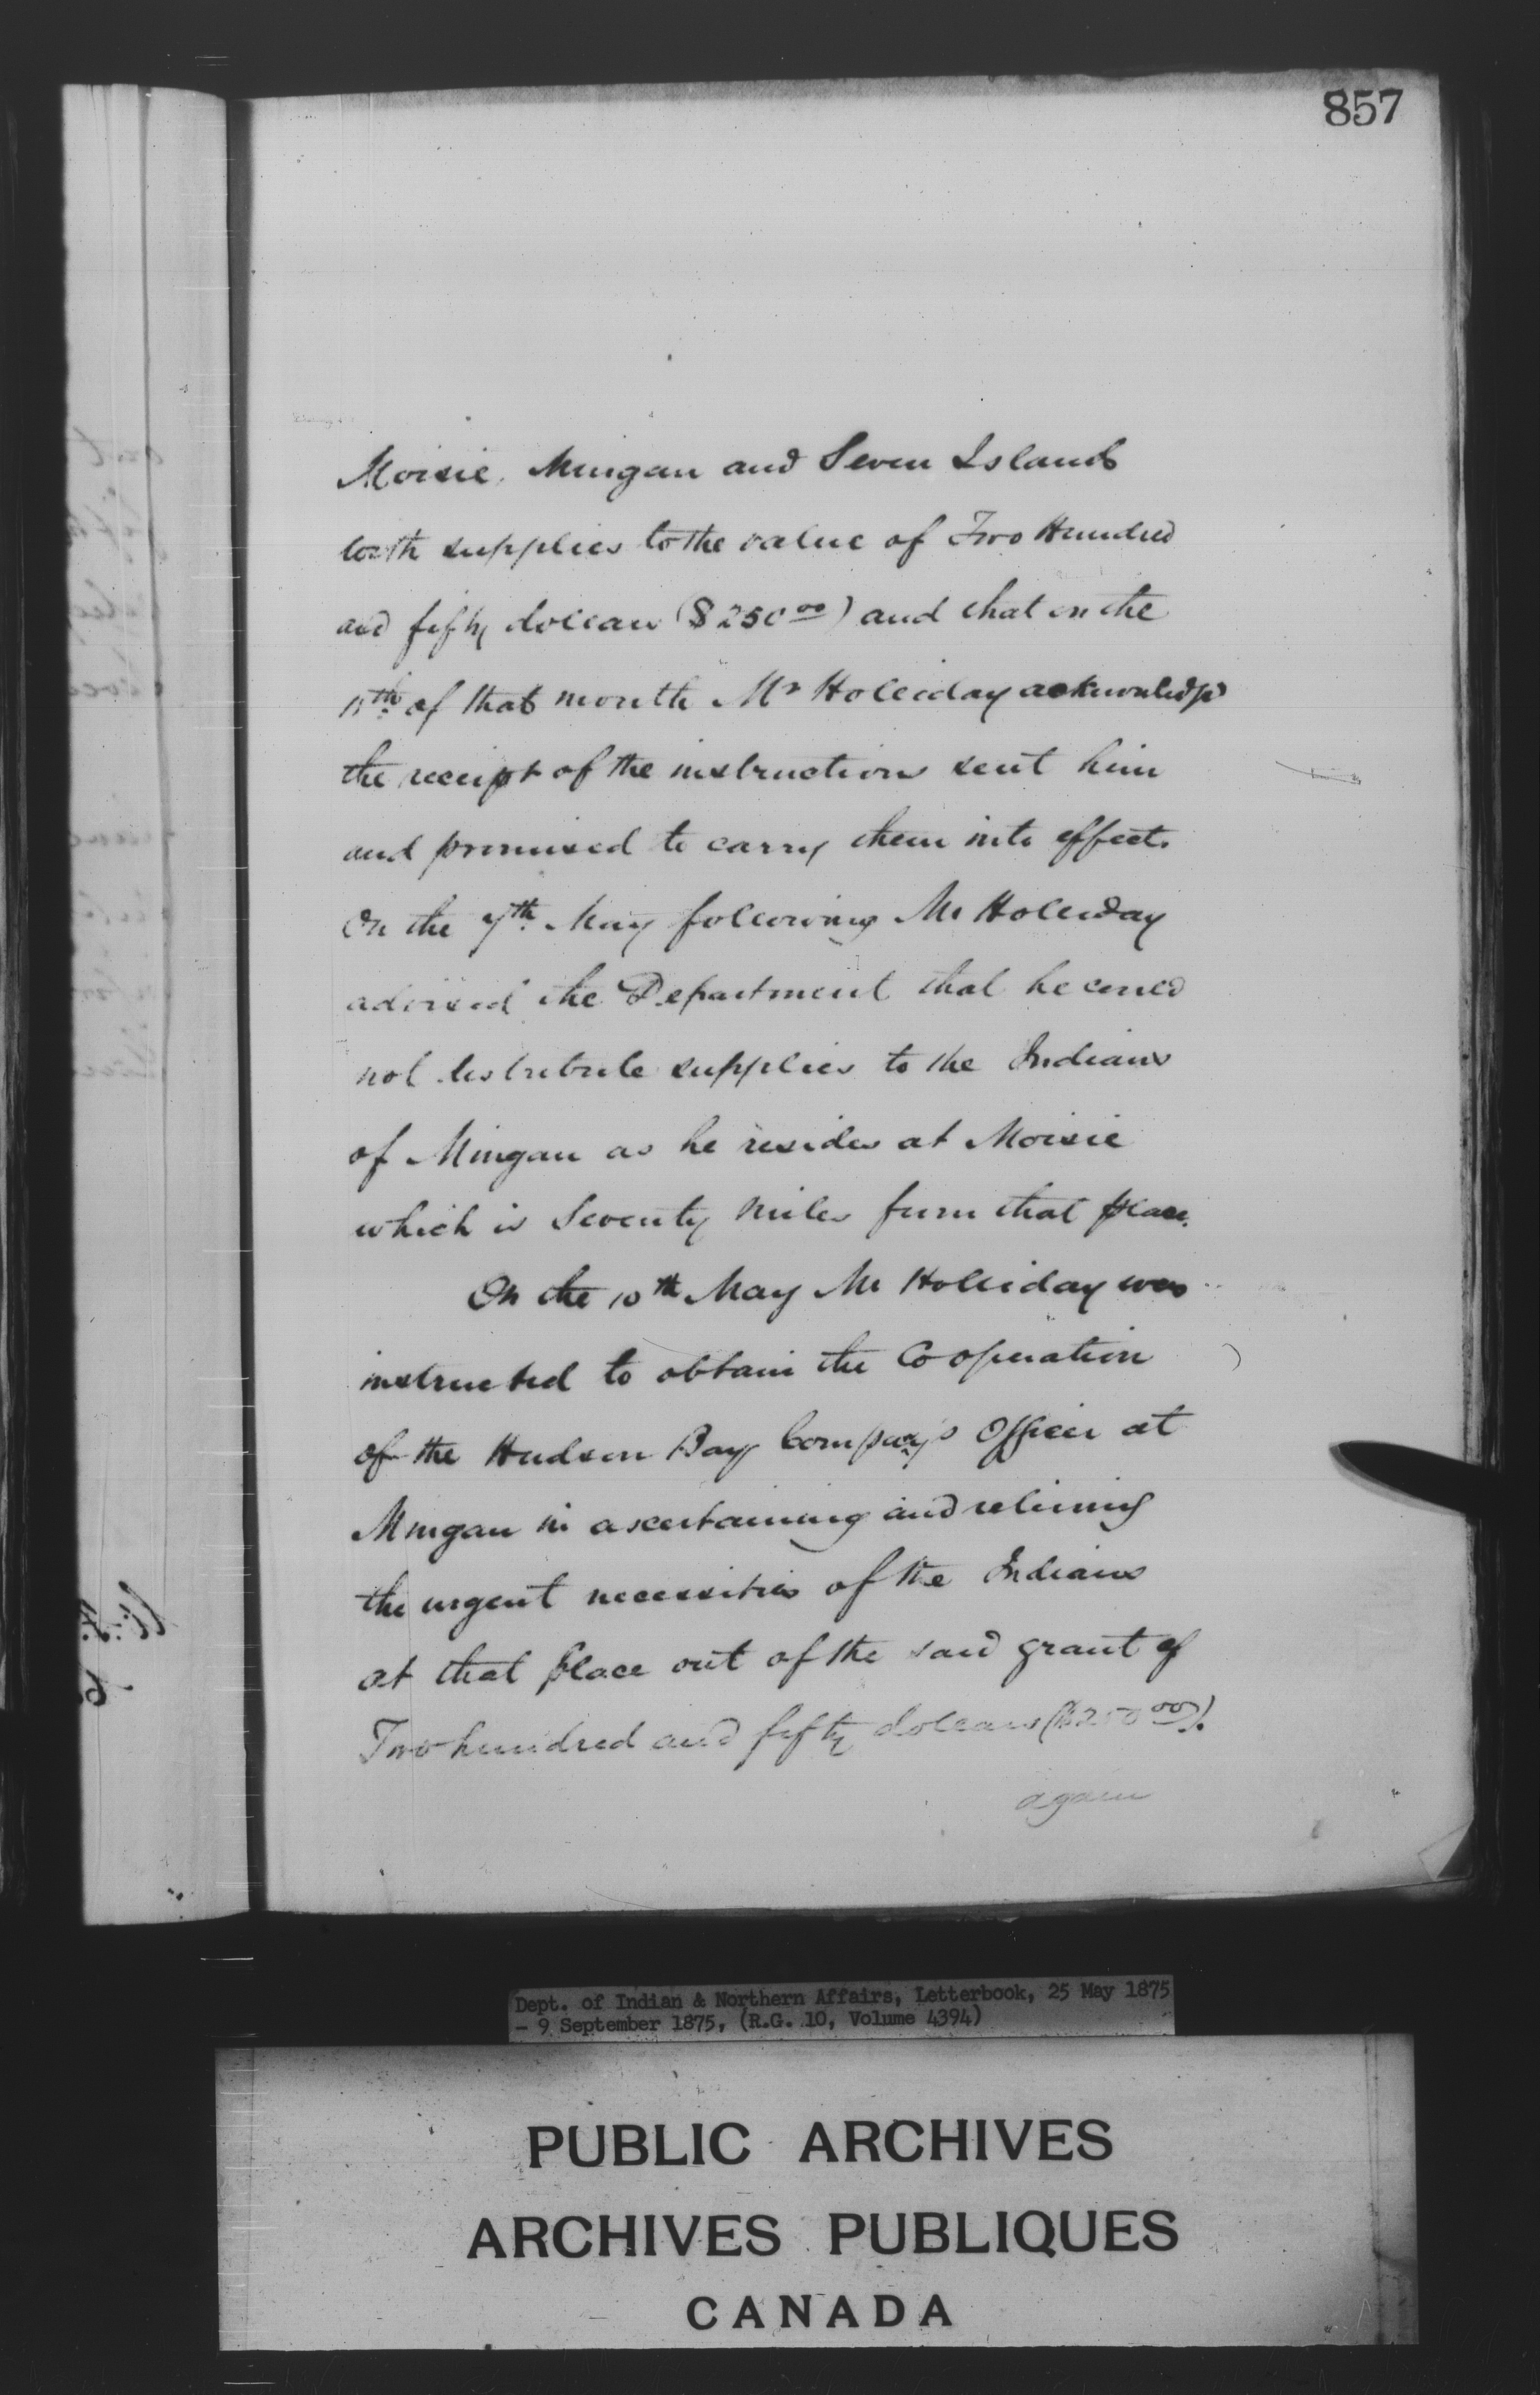 857
Moisie, Mingan and Seven Islands
with supplies to the value of Two Hundred
and fifty dollars ($250 00) and that on the
11th of that month Mr Holliday acknowledged
the receipt of the instructions sent him
and promised to carry them into effect.
On the 7th May following Mr Holliday
advised the Department that he could
not distribute supplies to the Indians
of Mingan as he resides at Moisie
which is Seventy miles from that place.
On the 10th May Mr Holliday was
instructed to obtain the Cooperation
of the Hudson Bay Company's Officer at
Mingan in ascertaining and relieving
the urgent necessities of the Indians
at that place out of the said grant of
Two hundred and fifty dollars ($250 00).
again
Dept. of Indian & Northern Affairs, Letterbook, 25 May 1875
- 9 September 1875, (R.G. 10, Volume 4394)
PUBLIC ARCHIVES
ARCHIVES PUBLIQUES
CANADA